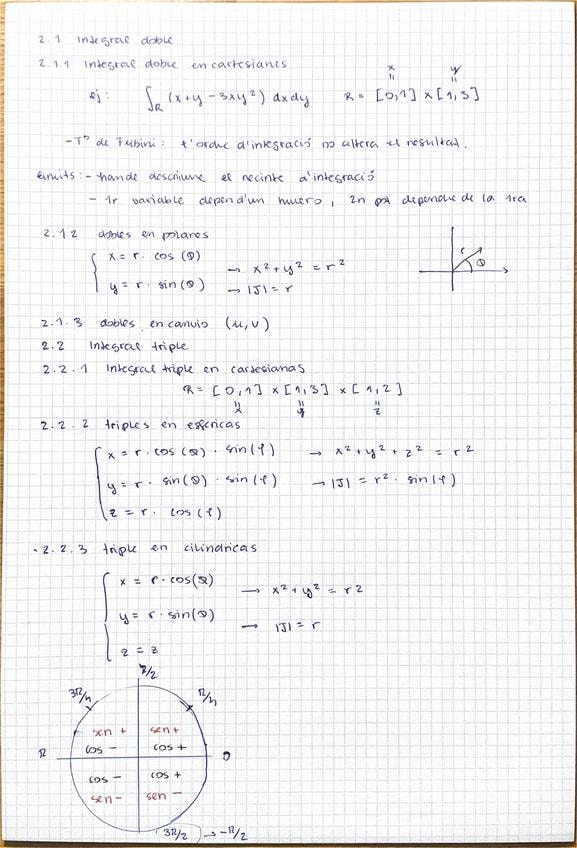 2.1 Integral doble
2.1.1 Integral doble en cartesianes
x y
ej: ∫R (x+y - 3xy²) dxdy R = [0,1] x [1,3]
-Tª de Fubini: l'ordre d'integració no altera el resultat.
Límits: - han de descriure el recinte d'integració
- 1r variable depend d'un número, 2n pot dependre de la 1ra
2.1.2 dobles en polares
x = r · cos (θ)
→ x² + y² = r²
y = r · sin (θ) → |J| = r
r θ
2.1.3 dobles en canvio (u,v)
2.2 Integral triple
2.2.1 Integral triple en cartesianas
R = [0,1] x [1,3] x [1,2]
x y z
2.2.2 triples en esféricas
x = r · cos (θ) · sin (φ) → x² + y² + z² = r²
y = r · sin (θ) · sin (φ) → |J| = r² · sin (φ)
z = r · cos (φ)
· 2.2.3 triple en cilindricas
x = r · cos(θ) → x² + y² = r2
y = r · sin(θ) → |J| = r
z = z
π/2
3π/4 π/4
sen + sen +
π cos - cos + 0
cos - cos +
sen - sen -
3π/2 → -π/2